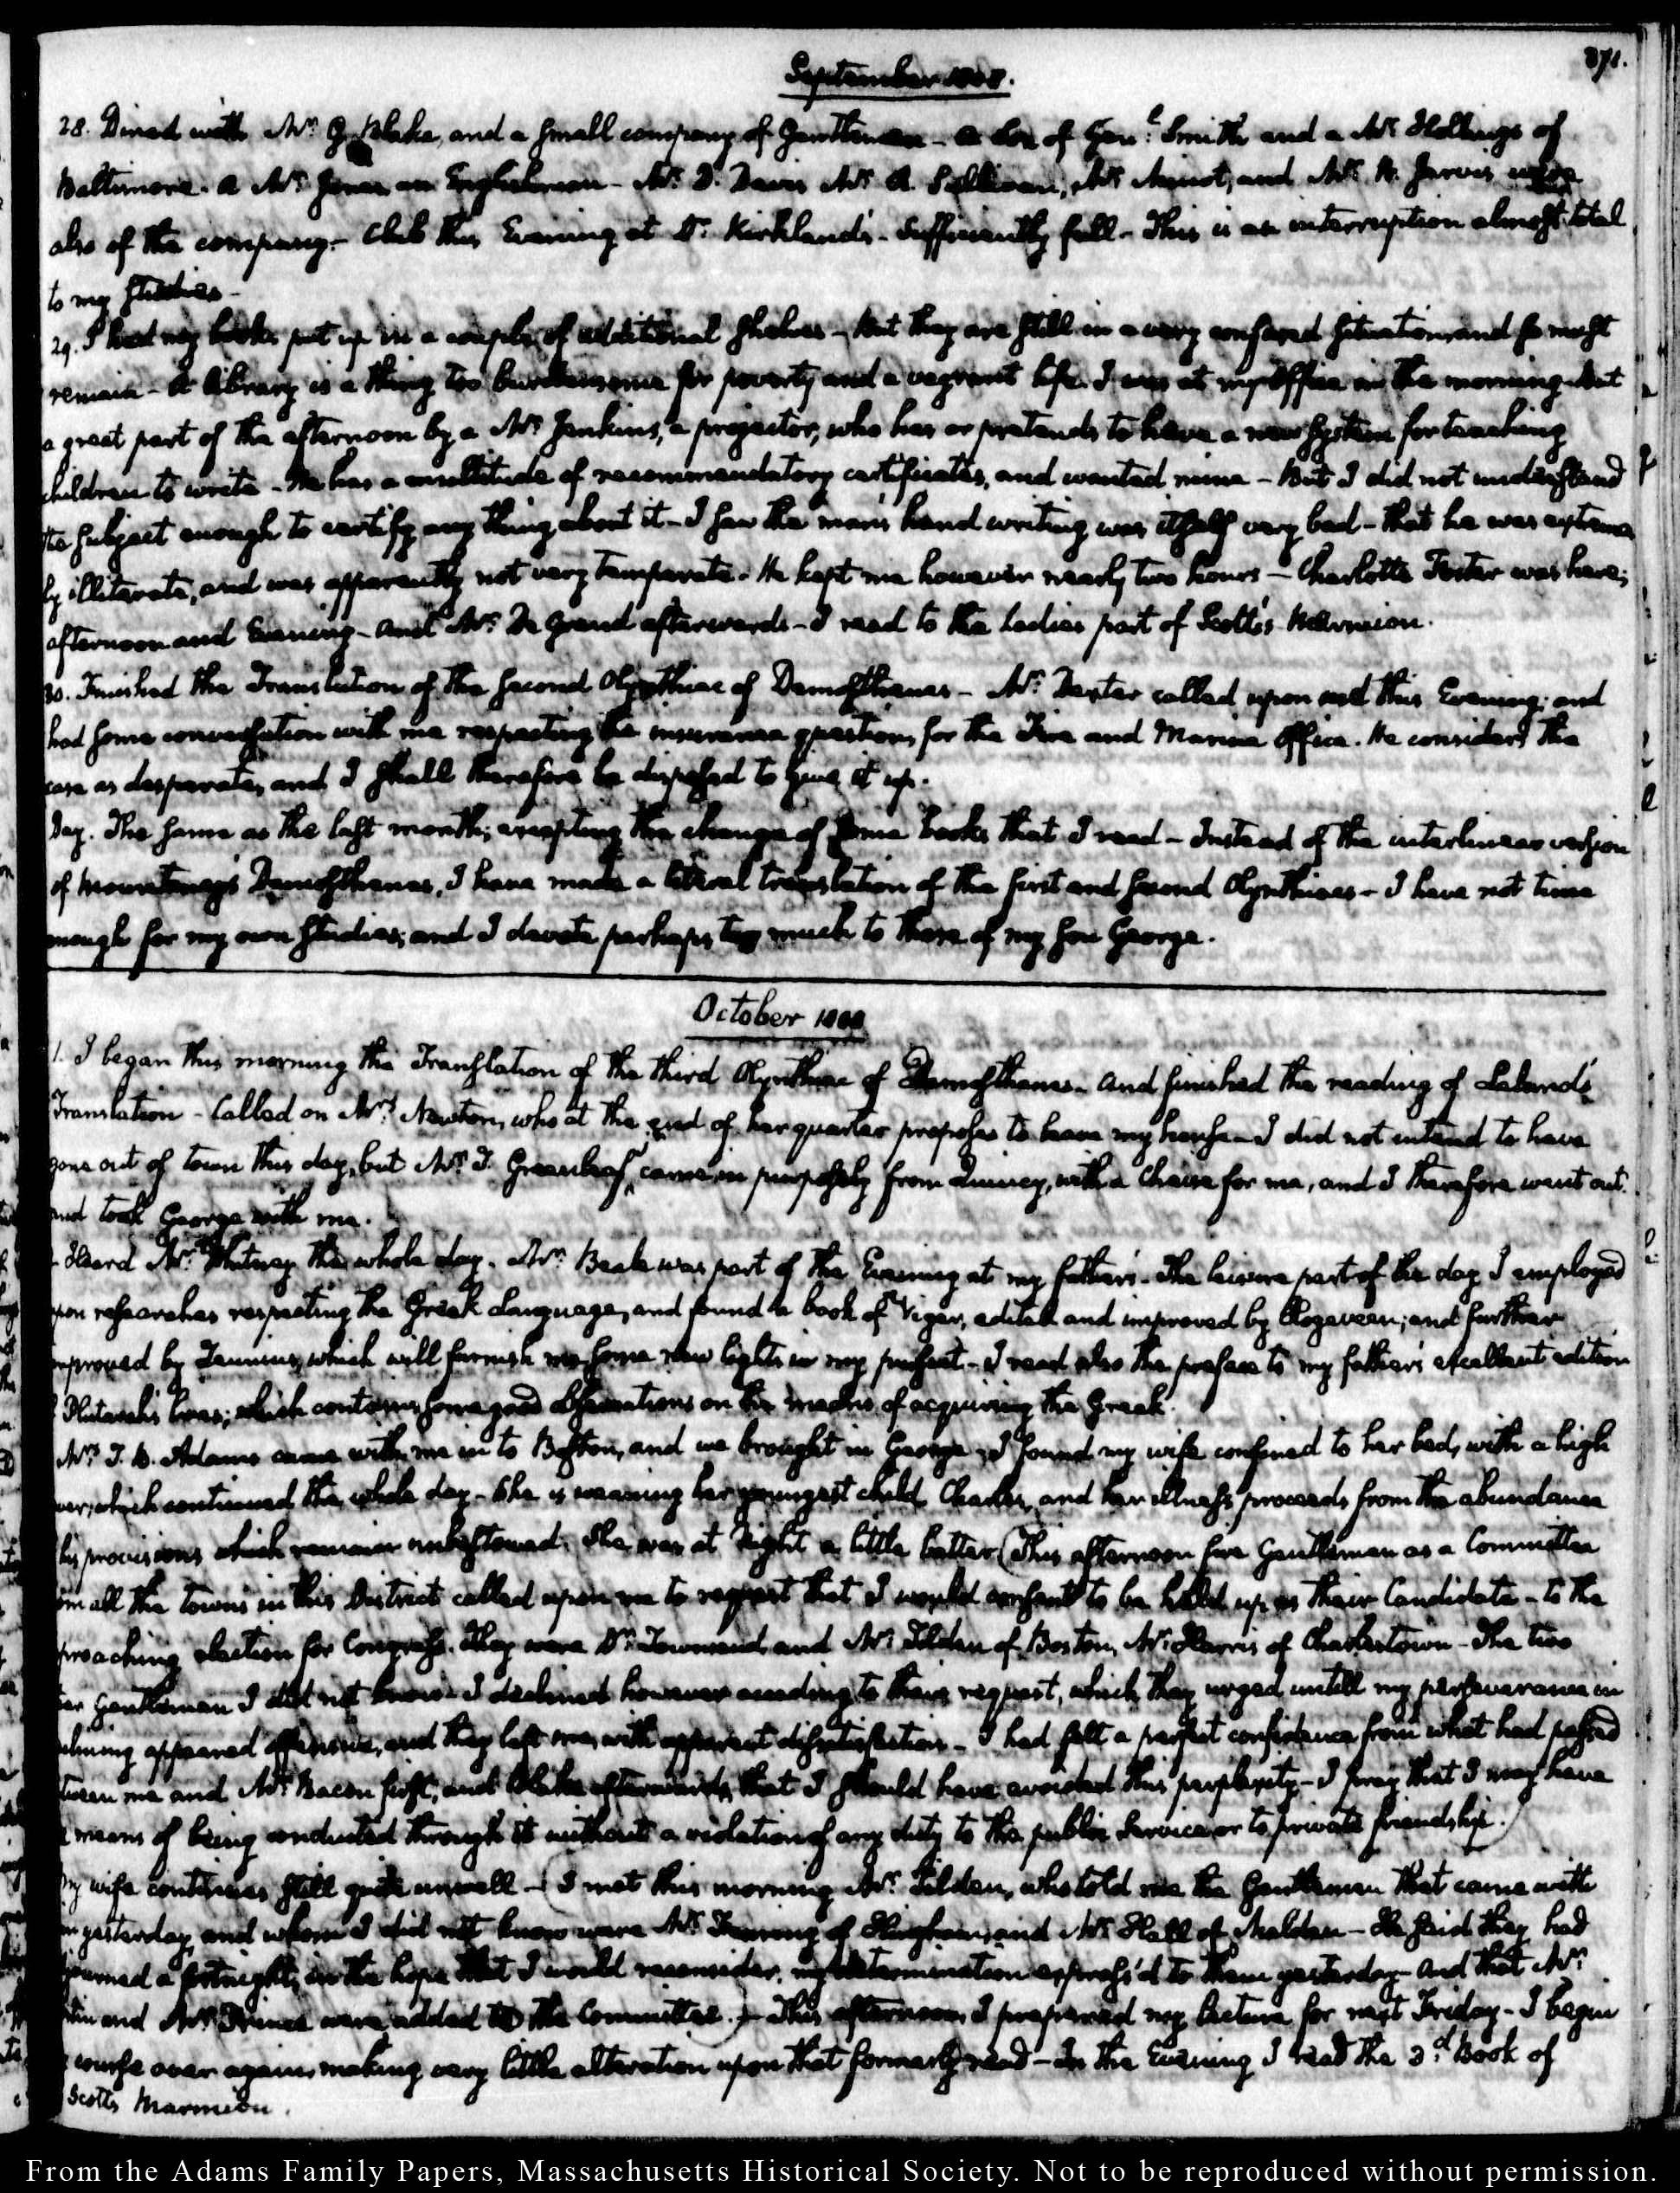 September 1808.
371.
28. Dined with Mr. G. Blake, and a small company of Gentlemen - a Son of Genl. Smith and a Mr. Hollings of
Baltimore. a Mr. Jones an Englishman - Mr. D. Davis Mr. A. Sullivan, Mr. Minot, and Mr. W. Jarvis were
also of the company - Club this Evening at Dr. Kirkland's - Sufficiently full - This is an interruption almost total
to my studies -
29. I had my books put up in a couple of additional shelves - But they are still in a very confused situation and so must
remain - A library is a thing too burdensome for poverty and a vagrant life. I was at my office in the morning - but
a great part of the afternoon by a Mr. Jenkins, a projector, who has or pretends to have a new system for teaching
children to write - He has a multitude of recommendatory certificates, and wanted mine - But I did not understand
the subject enough to certify any thing about it - I saw the man's hand writing was itself very bad - that he was extreme
ly illiterate, and was apparently not very temperate. He kept me however nearly two hours - Charlotte Foster was here;
afternoon and Evening - and Mr. De Grand afterwards - I read to the Ladies part of Scott's Marmion.
30. Finished the Translation of the second Olynthiac of Demosthenes - Mr. Dexter called upon me this Evening; and
had some conversation with me respecting the insurance questions for the Fire and Marine Office. He considers the
case as desperate, and I shall therefore be disposed to give it up.
Day. The same as the last month; excepting the change of some books that I read - Instead of the interlinear version
of Mounteney's Demosthenes, I have made a literal translation of the first and second Olynthiacs - I have not time
enough for my own studies; and I devote perhaps too much to those of my son George.
October 1808
1. I began this morning the Translation of the third Olynthiac of Demosthenes - and finished the reading of Leland's
Translation - Called on Mrs. Newton, who at the end of her quarter proposes to leave my house - I did not intend to have
gone out of town this day, but Mr. J. Greenleaf came in purposely from Quincy, with a Chaise for me, and I therefore went out.
and took George with me.
Heard Mr. Whitney the whole day. Mr. Beale was part of the Evening at my father's - The leisure part of the day I employed
upon researches respecting the Greek Language, and found a book of Viger, edited and improved by Hogeveen; and further
improved by Zeunius, which will furnish me some new lights in my pursuit - I read also the preface to my father's excellent edition
Plutarch's lives; which contains some good observations on the means of acquiring the Greek.
Mrs. T. B. Adams came with me in to Boston, and we brought in George - I found my wife confined to her bed, with a high
ver, which continued the whole day - She is weaning her youngest child Charles, and her illness proceeds from the abundance
his provisions which remain unbestowed. She was at Night a little better (This afternoon five Gentlemen as a Committee
om all the towns in this District called upon me to request that I would consent to be held up as their Candidate - to the
proaching election for Congress. They were Dr. Townsend and Mr. Tilden of Boston, Mr. Harris of Charlestown - The two
er Gentlemen I did not know - I declined however acceding to their request, which they urged untill my perseverance in
clining appeared offensive, and they left me, with apparent dissatisfaction - I had felt a perfect confidence from what had passed
tween me and Mr. Bacon first, and Blake afterwards, that I should have avoided this perplexity - I pray that I may have
means of being conducted through it without a violation of any duty to the public Service or to private friendship.)
My wife continues still quite unwell - (I met this morning Mr. Tilden, who told me the Gentlemen that came with
m yesterday, and whom I did not know were Mr. of Hingham, and Mr. Hall of Malden - He said they had
journed a fortnight, in the hope that I would reconsider, my determination express'd to them yesterday - and that Mr.
and Mr. Prince were added to the Committee.) - This afternoon I prepared my lecture for next Friday - I begin
course over again, making very little alteration upon that formerly read - In the Evening I read the 3d. Book of
Scott's Marmion.
From the Adams Family Papers, Massachusetts Historical Society. Not to be reproduced without permission.